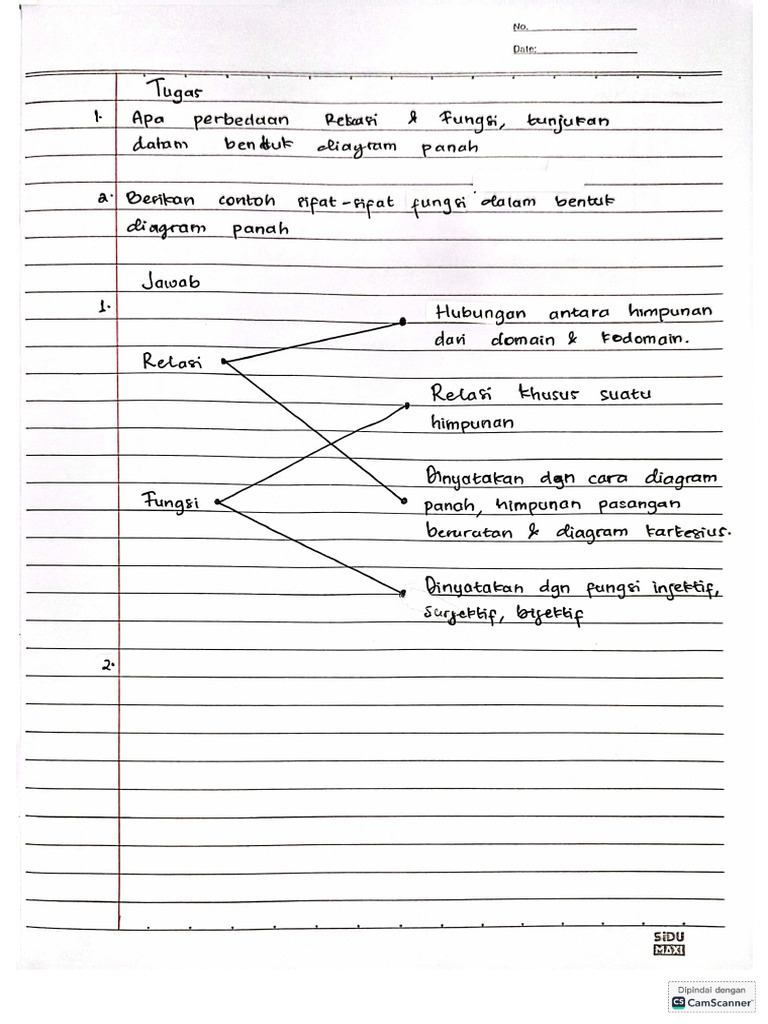 No.
Date:
Tugas
1. Apa perbedaan Relasi & Fungsi, tunjukan
dalam bentuk diagram panah
2. Berikan contoh sifat-sifat fungsi dalam bentuk
diagram panah
Jawab
1.
Hubungan antara himpunan
dari domain & kodomain.
Relasi
Relasi khusus suatu
himpunan
Dinyatakan dgn cara diagram
Fungsi
panah, himpunan pasangan
berurutan & diagram kartesius.
Dinyatakan dgn fungsi injektif,
surjektif, bijektif
2.
SiDU
MAXI
Dipindai dengan
CS CamScanner